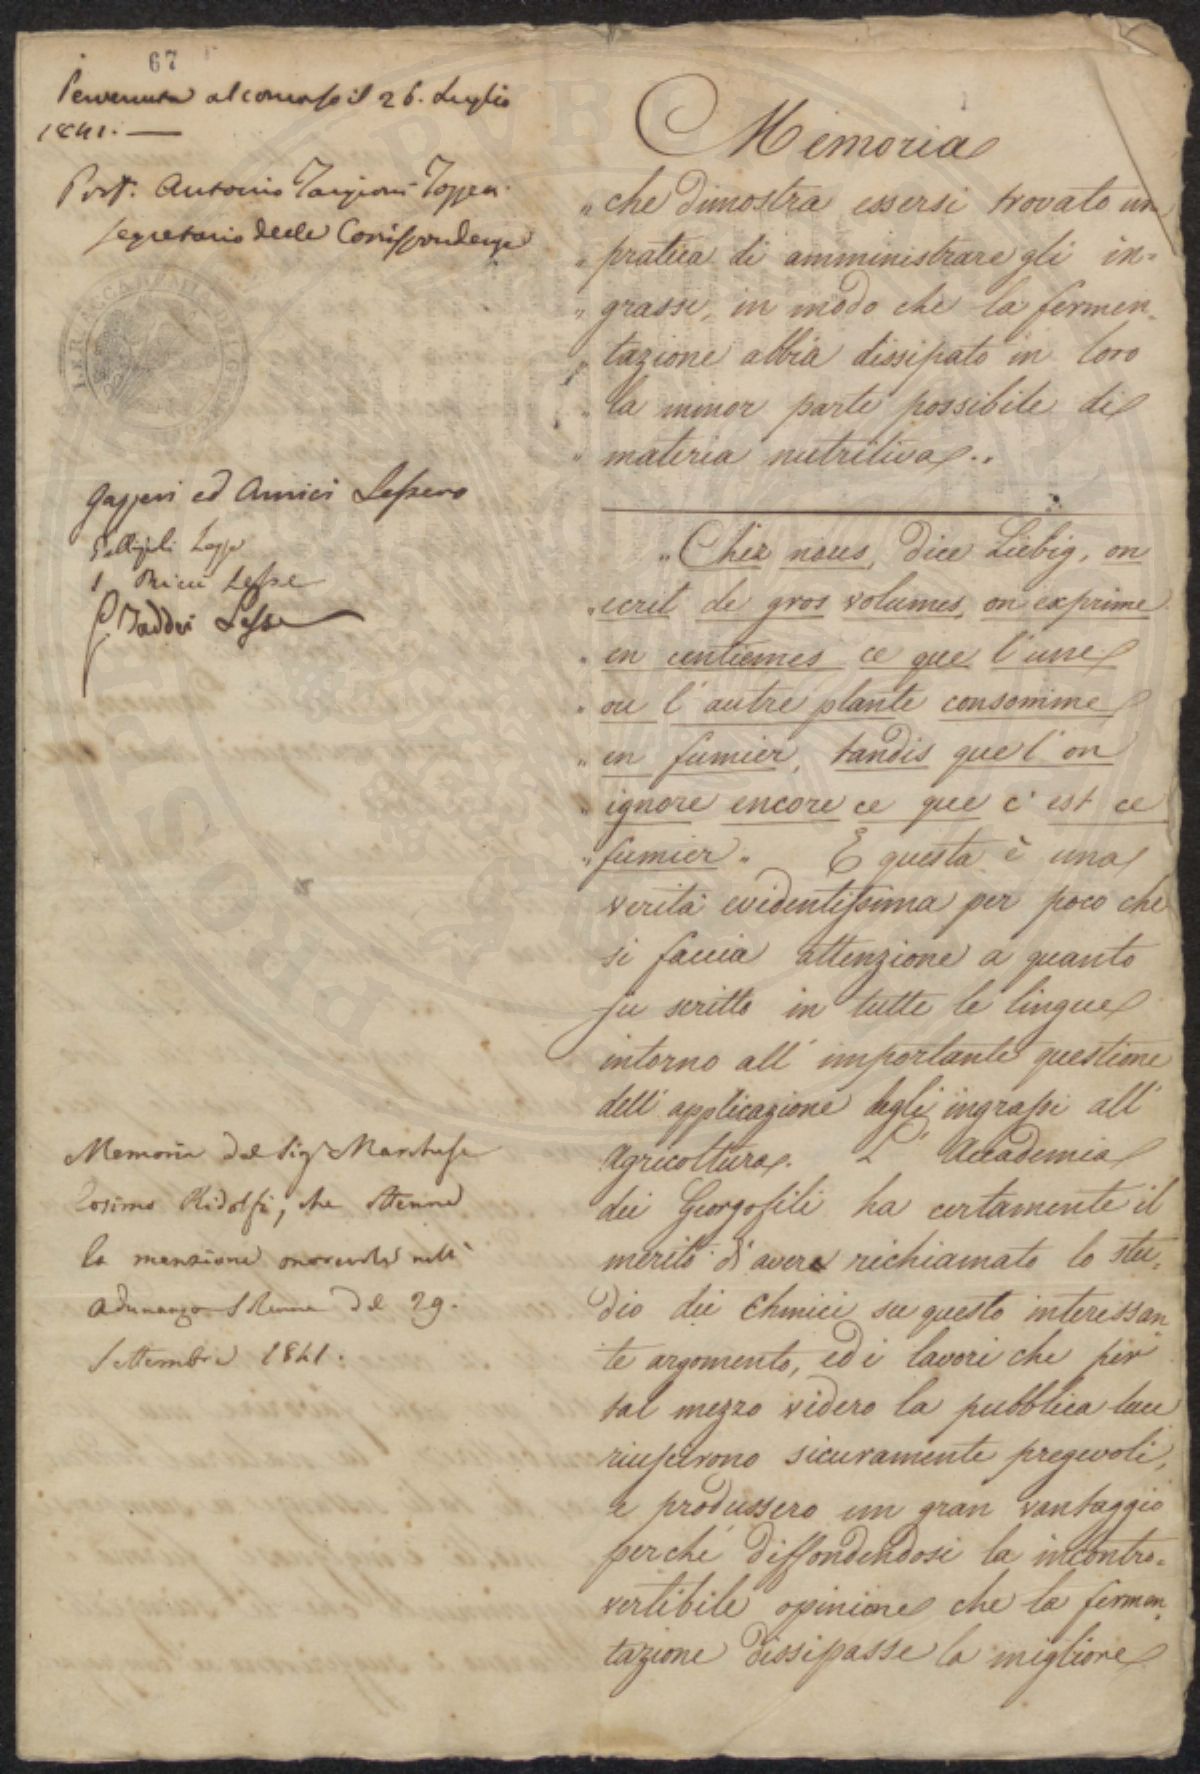 67
Pervenuta al concorso il 26. Luglio
1841. —
Prof. Antonio Targioni Tozzetti
Segretario delle Corrispondenze
Gazzeri ed Amici Lessero
Lesse
Ricci Lesse
Taddei Lesse
Memoria del Sigr. Marchese
Cosimo Ridolfi, che ottenne
la menzione onorevole nell'
adunanza solenne del 29.
Settembre 1841.
Memoria
" che dimostra essersi trovato un
" pratica di amministrare gli in=
" grassi, in modo che la fermen=
" tazione abbia dissipato in loro
" la minor parte possibile di
" materia nutritiva."
" Chez nous, dice Liebig, on
" ecrit de gros volumes, on exprime
" en centiemes ce que l'une
" ou l'autre plante consomme
" en fumier, tandis que l'on
" ignore encore ce que c'est ce
" fumier " E questa è una
verità evidentissima per poco che
si faccia attenzione a quanto
fu scritto in tutte le lingue
intorno all'importante questione
dell'applicazione degli ingrassi all'
Agricoltura. L'Accademia
dei Georgofili ha certamente il
merito di avere richiamato lo stu=
dio dei Chimici su questo interessan
te argomento, ed i lavori che per
tal mezzo videro la pubblica luce
riuscirono sicuramente pregevoli,
e produssero un gran vantaggio
perché diffondendosi la incontro=
vertibile opinione che la fermen=
tazione dissipasse la migliore